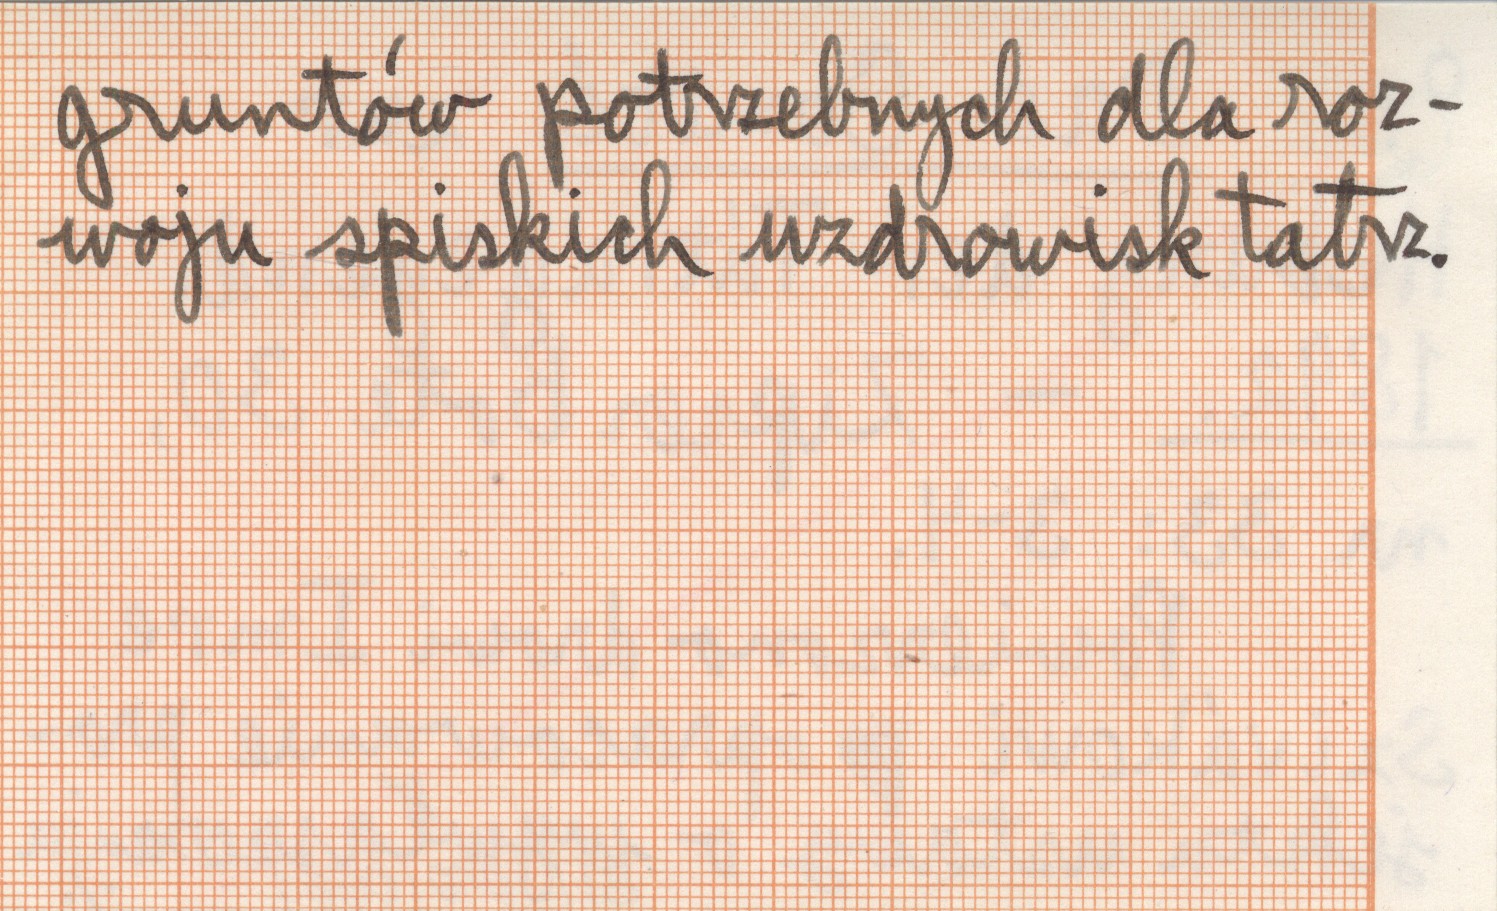 gruntów potrzebnych dla roz-
woju spiskich uzdrowisk tatrz.